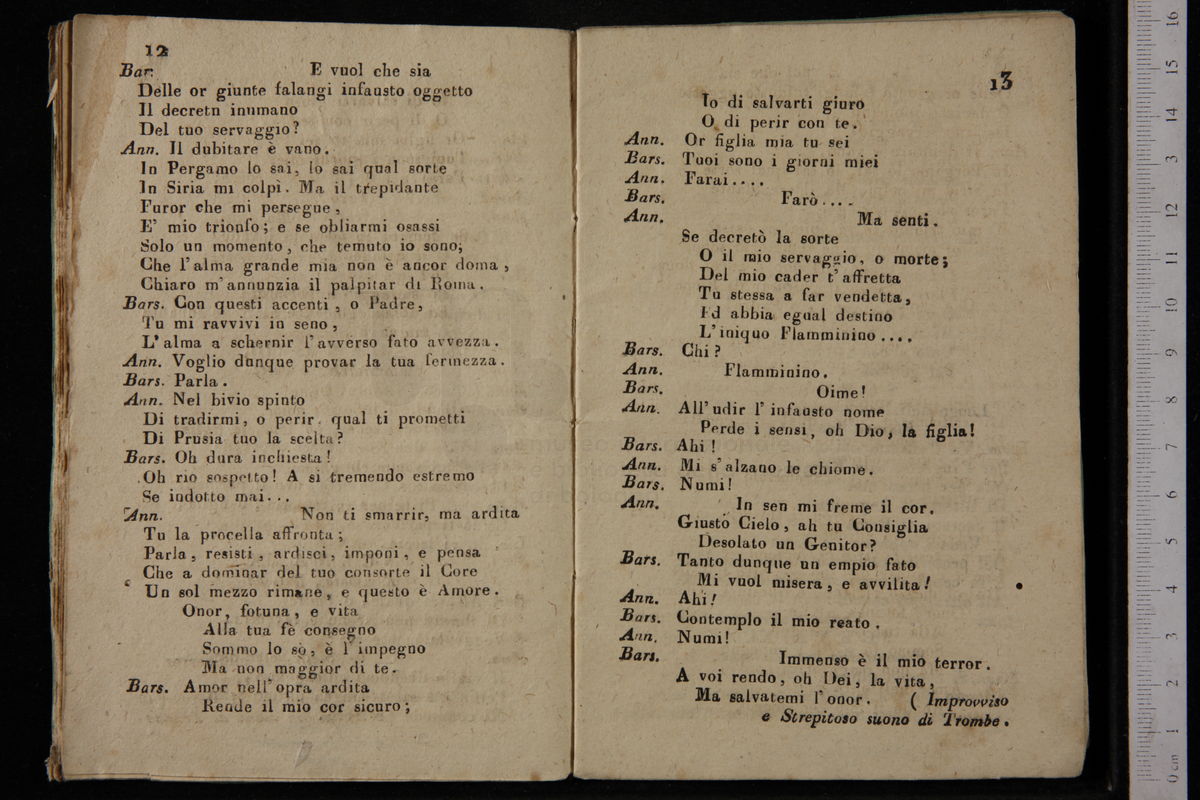 12
Bar. E vuol che sia
Delle or giunte falangi infausto oggetto
Il decretn inumano
Del tuo servaggio?
Ann. Il dubitare è vano.
In Pergamo lo sai, lo sai qual sorte
In Siria mi colpì. Ma il trepidante
Furor che mi persegue,
E' mio trionfo; e se obliarmi osassi
Solo un momento, che temuto io sono;
Che l'alma grande mia non è ancor doma,
Chiaro m'annunzia il palpitar di Roma.
Bars. Con questi accenti, o Padre,
Tu mi ravvivi in seno,
L'alma a schernir l'avverso fato avvezza.
Ann. Voglio dunque provar la tua fermezza.
Bars. Parla.
Ann. Nel bivio spinto
Di tradirmi, o perir, qual ti prometti
Di Prusia tuo la scelta?
Bars. Oh dura inchiesta!
Oh rio sospetto! A sì tremendo estremo
Se indotto mai...
Ann. Non ti smarrir, ma ardita
Tu la procella affronta;
Parla, resisti, ardisci, imponi, e pensa
Che a dominar del tuo consorte il Core
Un sol mezzo rimane, e questo è Amore.
Onor, fotuna, e vita
Alla tua fè consegno
Sommo lo sò, è l'impegno
Ma non maggior di te.
Bars. Amor nell'opra ardita
Rende il mio cor sicuro;
13
Io di salvarti giuro
O di perir con te.
Ann. Or figlia mia tu sei
Bars. Tuoi sono i giorni miei
Ann. Farai....
Bars. Farò....
Ann. Ma senti.
Se decretò la sorte
O il mio servaggio, o morte;
Del mio cader t'affretta
Tu stessa a far vendetta,
Ed abbia egual destino
L'iniquo Flamminino....
Bars. Chi?
Ann. Flamminino.
Bars. Oime!
Ann. All'udir l'infausto nome
Perde i sensi, oh Dio, la figlia!
Bars. Ahi!
Ann. Mi s'alzano le chiome.
Bars. Numi!
Ann. In sen mi freme il cor.
Giusto Cielo, ah tu Consiglia
Desolato un Genitor?
Bars. Tanto dunque un empio fato
Mi vuol misera, e avvilita!
Ann. Ahi!
Bars. Contemplo il mio reato.
Ann. Numi!
Bars. Immenso è il mio terror.
A voi rendo, oh Dei, la vita,
Ma salvatemi l'onor. ( Improvviso
e Strepitoso suono di Trombe.
0 cm 1 2 3 4 5 6 7 8 9 10 11 12 13 14 15 16